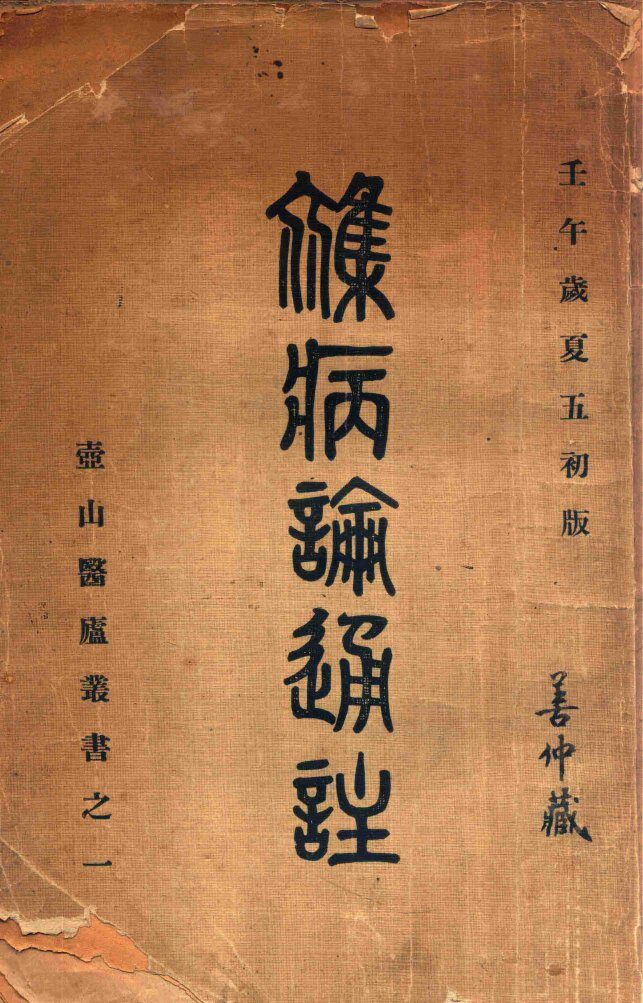 壬午歲夏五初版
善仲藏
雜病論通註
壺山醫廬叢書之一